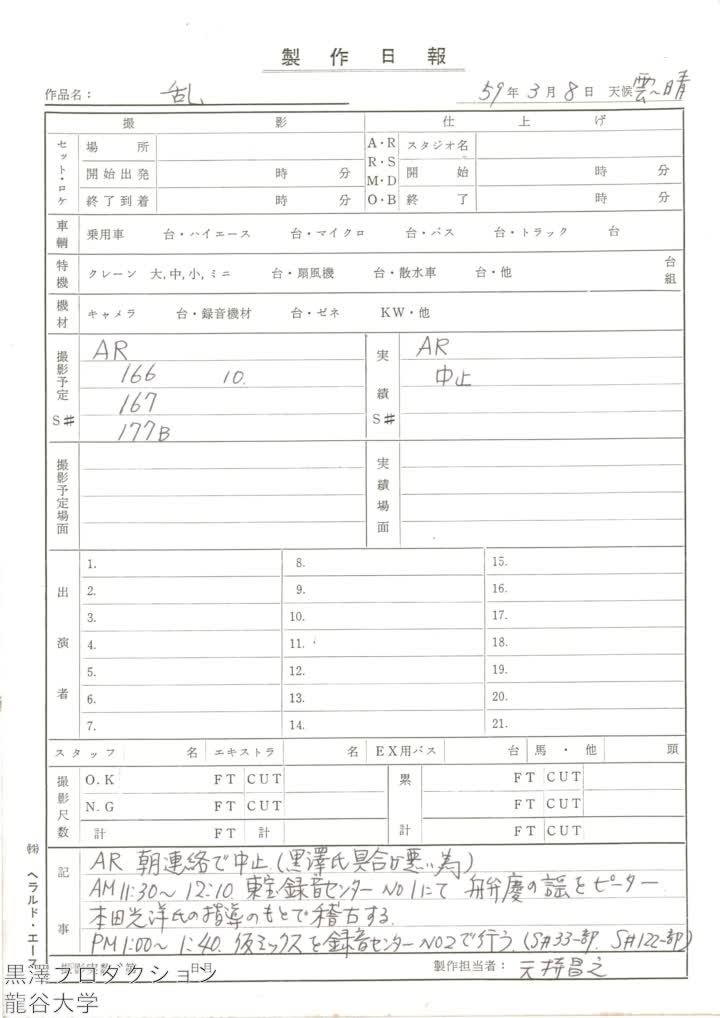 製作日報
作品名： 乱 59年 3月 8日 天候 雲〜晴
撮影 仕上げ
セット・ロケ 場所 A・R R・S M・D O・B スタジオ名
開始出発 時 分 開始 時 分
終了到着 時 分 終了 時 分
車輌 乗用車 台・ハイエース 台・マイクロ 台・バス 台・トラック 台
特機 クレーン 大,中,小,ミニ 台・扇風機 台・散水車 台・他 台組
機材 キャメラ 台・録音機材 台・ゼネ KW・他
撮影予定 S# AR 実績 S# AR
166 10. 中止
167
177B
撮影予定場面 実績場面
出演者 1. 8. 15.
2. 9. 16.
3. 10. 17.
4. 11. 18.
5. 12. 19.
6. 13. 20.
7. 14. 21.
スタッフ 名 エキストラ 名 EX用バス 台 馬・他 頭
撮影尺数 O.K FT CUT 累計 FT CUT
N.G FT CUT FT CUT
計 FT 計 FT CUT
記事 AR 朝連絡で中止.(黒澤氏具合が悪い為)
AM11:30〜12:10. 東宝録音センターNO1にて 舟弁慶の謡をピーター
本田光洋氏の指導のもとで稽古する.
PM1:00〜1:40. 仮ミックスを録音センターNO2で行う.(S#33一部. S#122一部)
日目 製作担当者：
㈱ ヘラルド・エース
黒澤プロダクション
龍谷大学